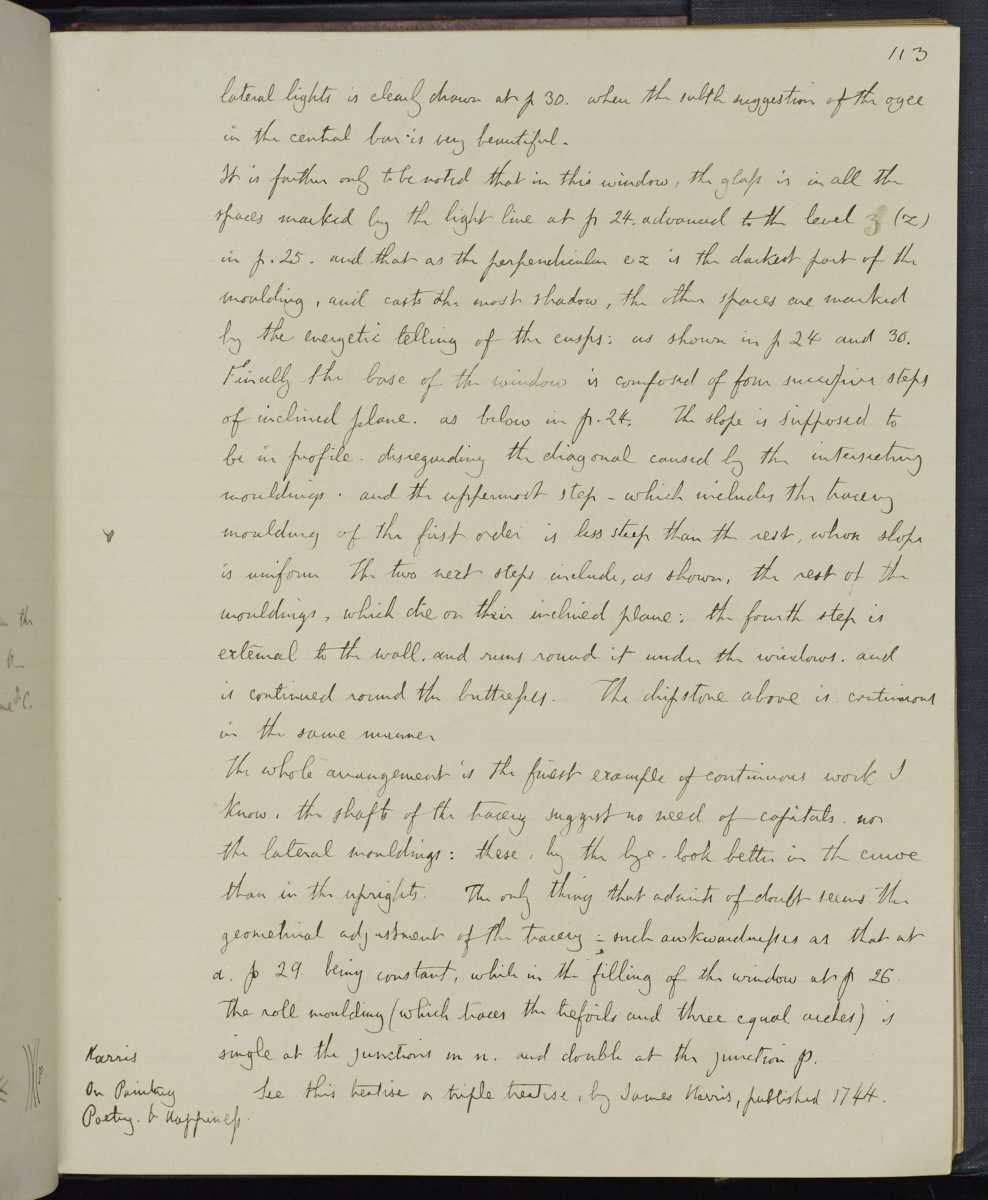 113
lateral lights is clearly drawn at p 30. when the subtle suggestion of the ogee
in the central bar is very beautiful.
It is further only to be noted that in this window, the glass is in all the
spaces marked by the light line at p 24. advanced to the level 3 (z)
in p. 25. and that as the perpendicular e z is the darkest part of the
moulding, and casts the most shadow, the other spaces are marked
by the energetic telling of the cusps: as shown in p 24 and 30.
Finally the base of the window is composed of four successive steps
of inclined plane. as below in p. 24. The slope is supposed to
be in profile. disregarding the diagonal caused by the intersecting
mouldings. and the uppermost step - which includes the tracery
moulding of the first order is less steep than the rest, whose slope
is uniform The two next steps include, as shown, the rest of the
mouldings, which die on their inclined plane: the fourth step is
external to the wall. and runs round it under the windows. and
is continued round the buttresses. The dripstone above is continuous
in the same manner
The whole arrangement is the finest example of continuous work I
know. the shafts of the tracery suggest no need of capitals. nor
the lateral mouldings: these, by the bye. look better in the curve
than in the uprights. The only thing that admits of doubt seems the
geometrical adjustment of the tracery: such awkwardnesses as that at
a. p 29. being constant, while in the filling of the window at p 26.
The roll moulding (which traces the trefoils and three equal arches) is
single at the junctions m n. and double at the junction p.
Harris
On Painting
Poetry. & Happiness.
See this treatise or triple treatise, by James Harris, published 1744.